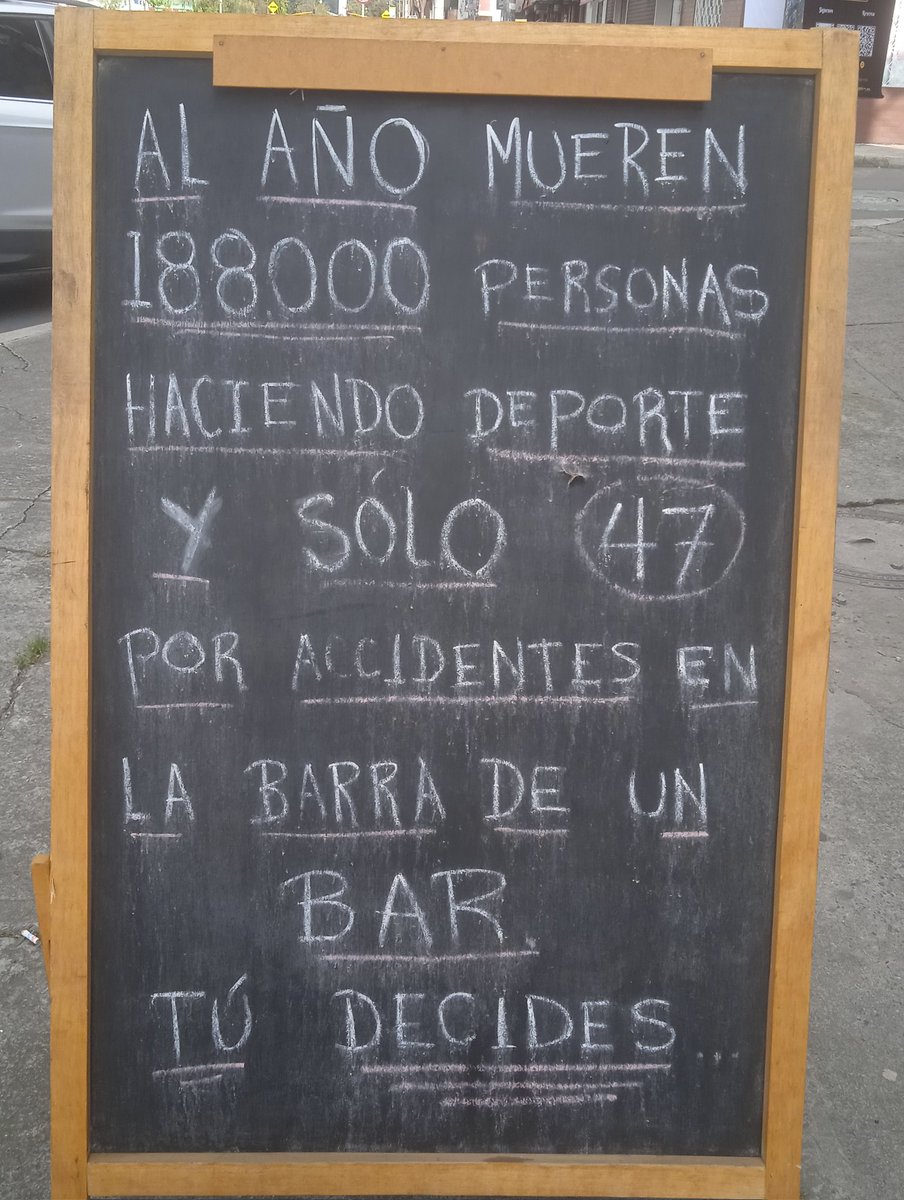 AL AÑO MUEREN
188.000 PERSONAS
HACIENDO DEPORTE
Y SÓLO 47
POR ACCIDENTES EN
LA BARRA DE UN
BAR.
TÚ DECIDES...